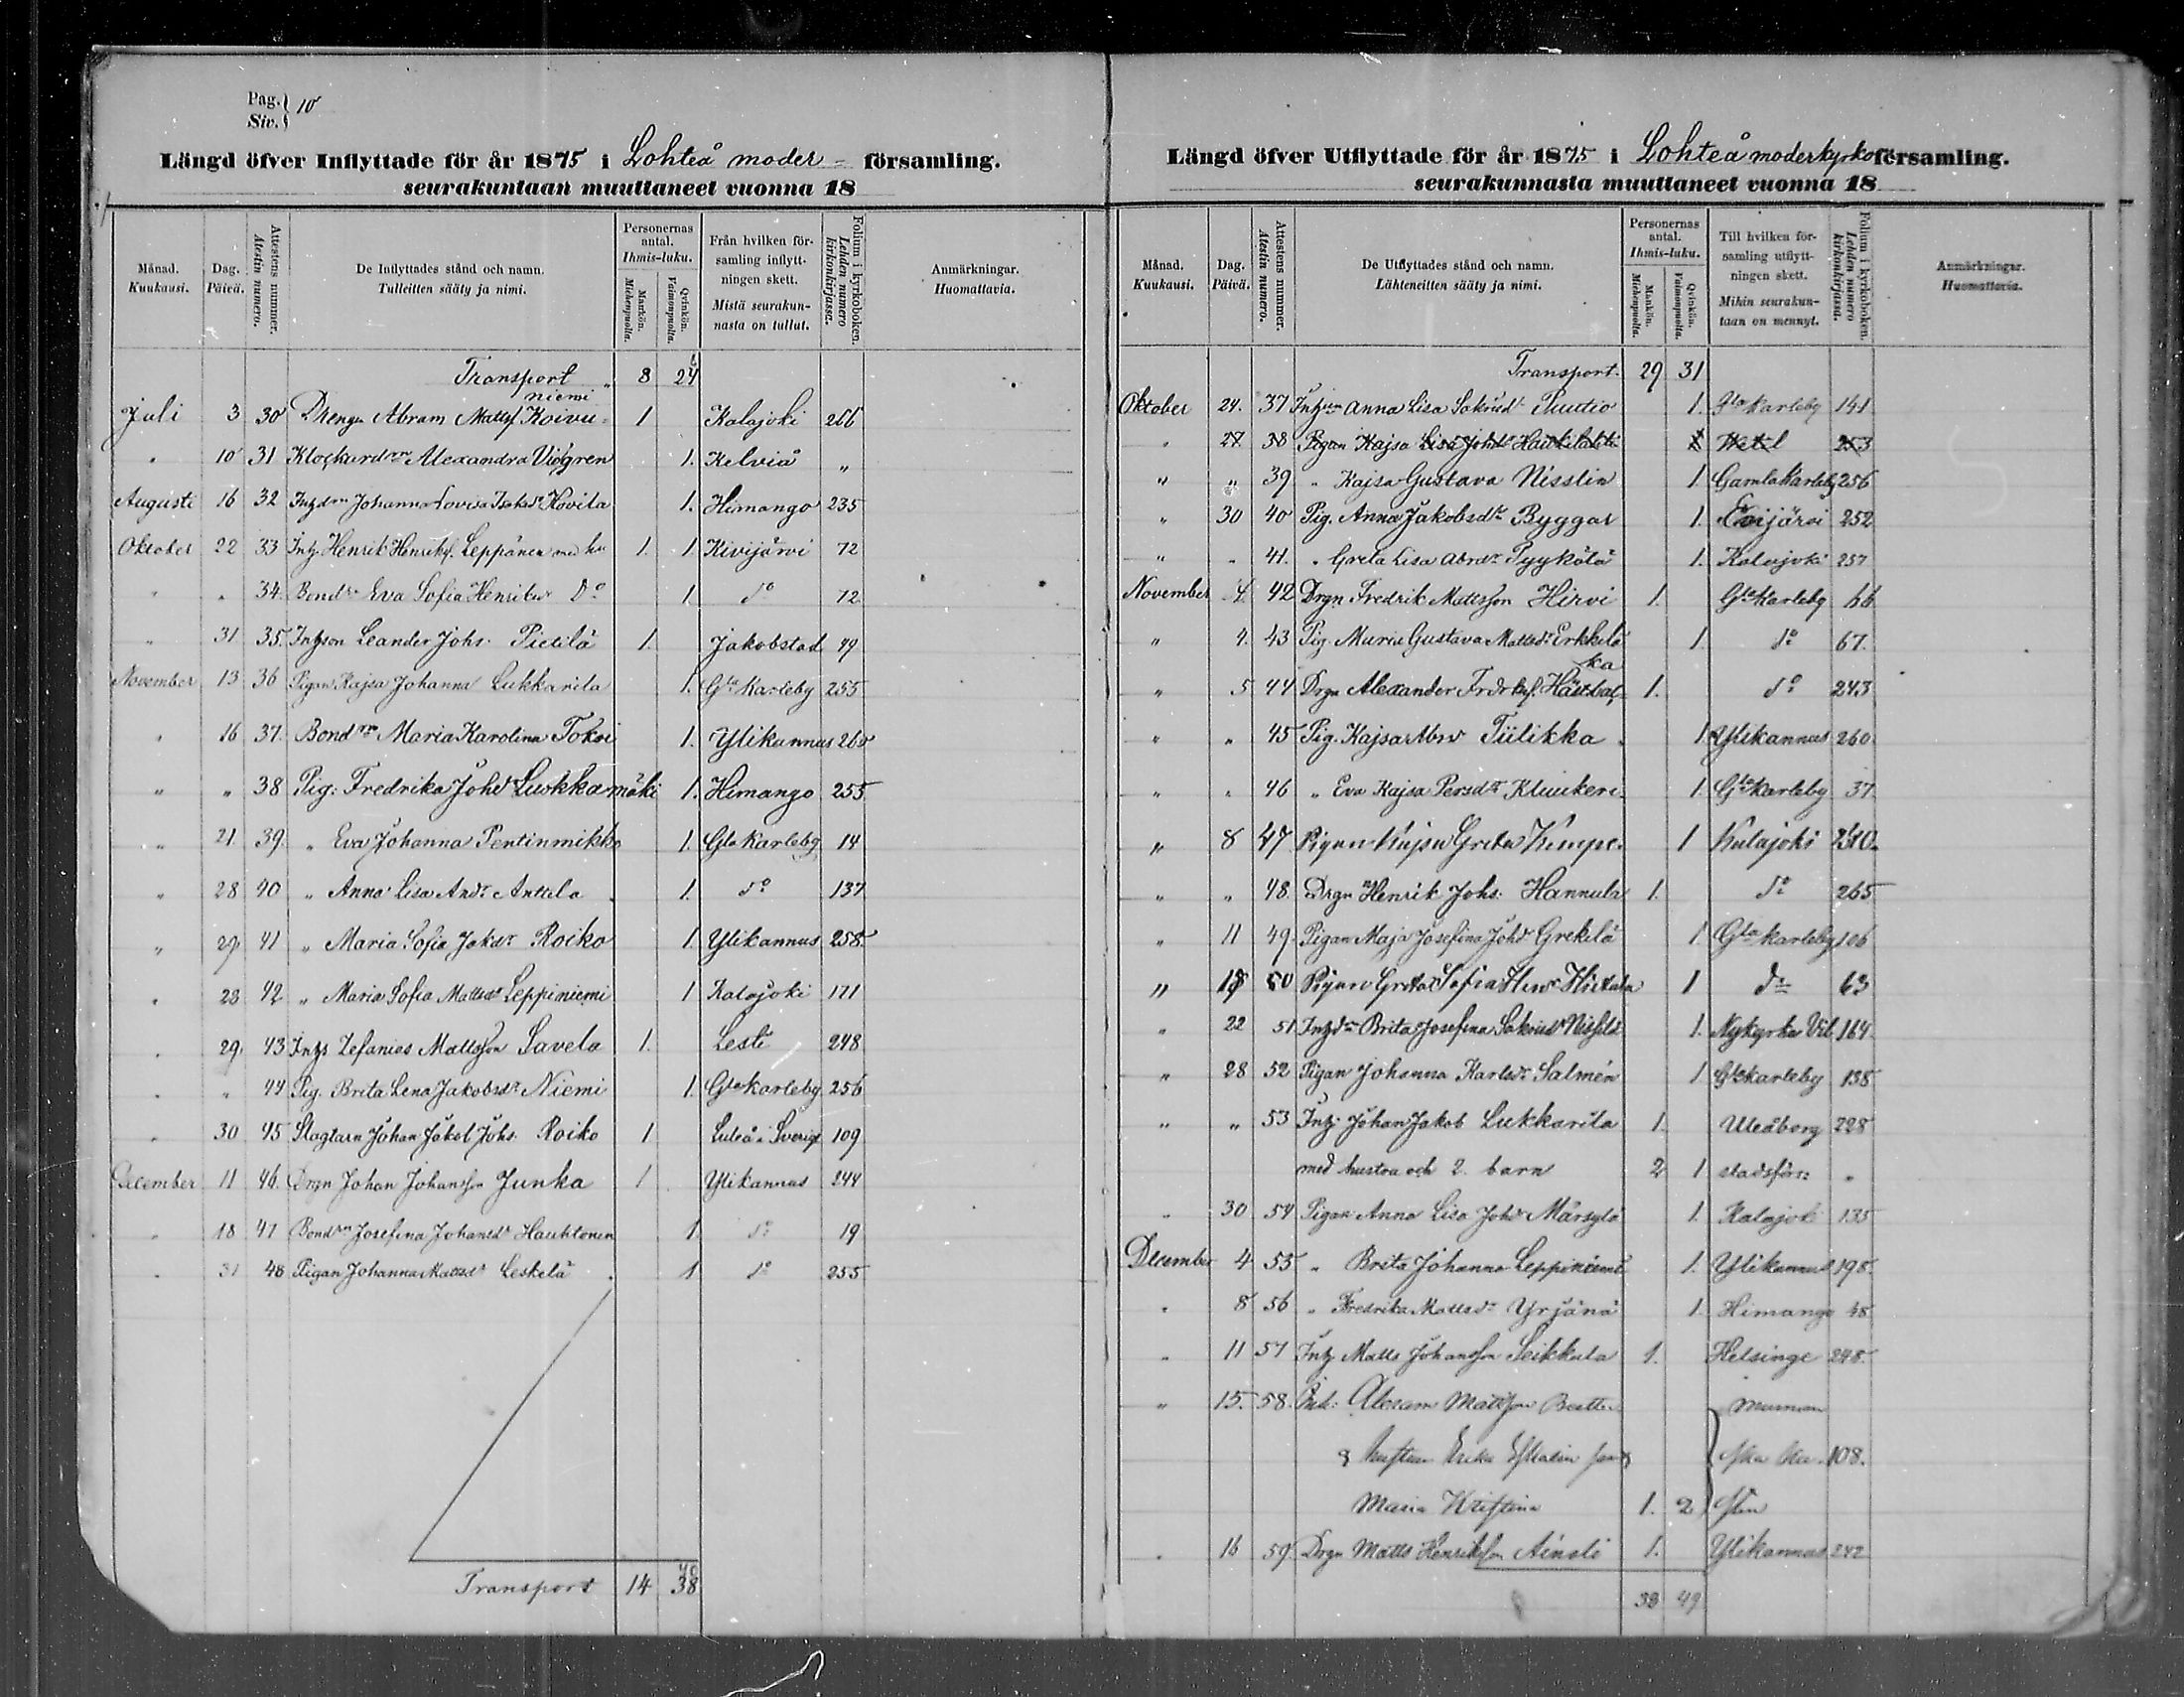 Pag. } 10
Siv. }
Längd öfver Inflyttade för år 1875 i Lohteå moder- församling.
seurakuntaan muuttaneet vuonna 18
Månad. Kuukausi. Dag. Päivä. Attestens nummer. Atestin numero. De Inflyttades stånd och namn. Tulleitten sääty ja nimi. Personernas antal. Ihmis-luku. Mankön. Miehenpuolta. Qvinkön. Vaimonpuolta. Från hvilken församling inflyttningen skett. Mistä seurakunnasta on tullut. Folium i kyrkoboken. Lehden numero kirkonkirjassa. Anmärkningar. Huomattavia.
Transport 8 24
Juli 3 30 Drengen Abram Mattsf Koivuniemi 1 Kalajoki 266
" 10 31 Alexandra Viögren 1. Kelviå "
Augusti 16 32 Johanna Lovisa Isaksdr Hovila 1. Himango 235
Oktober 22 33 Inh. Henrik Henriksf. Leppänen med hu 1. 1 Kivijärvi 72
" " 34. Bondr Eva Sofia Henriksdr Do 1. do 72
" 31 35. Leander Johs. Pietilä 1. Jakobstad 49
November 13 36 Pigan Kajsa Johanna Lukkarila 1. Gla Karleby 255
" 16 37. Maria Karolina Tokoi 1. Ylikannus 260
" " 38 Pig: Fredrika Johdr Luskkamäki 1. Himango 255
" 21 39. " Eva Johanna Pentinmikko 1. Gla Karleby 14
" 28 40 " Anna Lisa Andr Anttila 1. do 137
" 29 41 " Maria Sofia Jakdr Roiko 1 Ylikannus 258.
" 23 42 " Maria Sofia Mattsdr Leppiniemi 1 Kalajoki 171
" 29. 43 Zefanias Mattsson Savela 1. Lesti 248
" " 44 Pig. Brita Lena Jakobsdr Niemi 1. Gla Karleby 256
" 30 45 Johan Jakob Johs. Roiko 1 Luleå i Sverige 109
December 11 46. Drgn Johan Johansson Junka 1 Ylikannus 244
" 18 47 Josefina Johansdr Hauhtonen 1 do 19
" 31 48 Pigan Johanna Mattsdr Leskelä 1 do 255
40
Transport 14 38
Längd öfver Utflyttade för år 1875 i Lohteå moderkyrko församling.
seurakunnasta muuttaneet vuonna 18
Månad. Kuukausi. Dag. Päivä. Attestens nummer. Atestin numero. De Utflyttades stånd och namn. Lähteneitten sääty ja nimi. Personernas antal. Ihmis-luku. Mankön. Miehenpuolta. Qvinkön. Vaimonpuolta. Till hvilken församling utflyttningen skett. Mihin seurakuntaan on mennyt. Folium i kyrkoboken. Lehden numero kirkonkirjassa. Anmärkningar. Huomattavia.
Transport. 29 31
Oktober 24. 37 Anna Lisa 1. Gla Karleby 141
" 27 38 Pigan Kajsa Lisa Johdr 1 Wetil 253
" " 39 " Kajsa Gustava Nisslin 1 Gamla Karleby 256
" 30 40 Pig. Anna Jakobsdr Byggar 1. Evijärvi 252
" " 41. " Greta Lisa Abrdr Pyykölä 1. Kalajoki 257
November 4. 42 Drgn Fredrik Mattsson Hirvi 1. Gla Karleby 66
" 4. 43 Pig. Maria Gustava Mattsdr Erkkilä 1 do 67.
" 5 44 Drgn Alexander 1. do 243
" " 45 Pig. Kajsa Abrdr Tiilikka 1 Ylikannus 260.
" " 46 " Eva Kajsa Persdr Kluukeri 1. Gla Karleby 37
" 8 47 Pigan Kajsa Greta Kimpe. 1 Kalajoki
" " 48. Drgn Henrik Johs. Hannula 1. do 265
" 11 49. Pigan Maja Josefina Johdr Grekilä 1 Gla Karleby 106
" 50 Pigan Greta Sofia Hendr 1 do 63
" 22 51 Brita Josefina 1. Nykyrka Vib. 164
" 28 52 Pigan Johanna Karlsdr Salmén 1 Gla Karleby 138
" " 53 Inh. Johan Jakob Lukkarila 1. Uleåborg 228
med hustru och 2. barn 2 1 stadsförs: "
" 30 54 Pigan Anna Lisa Johdr Märsylä 1. Kalajoki 135
December 4 55 " Brita Johanna Leppiniemi 1. Ylikannus 198.
" 8 56 " Fredrika Mattsdr Yrjänä 1. Himango 48
" 11 57 Matts Johansson Seikkala 1. Helsinge 248.
" 15. 58. Abram Mattsson
& hustrun 108.
Maria Kristina 1. 2
" 16 59. Drgn Matts Henriksson Ainali 1. Ylikannus 242
33 49